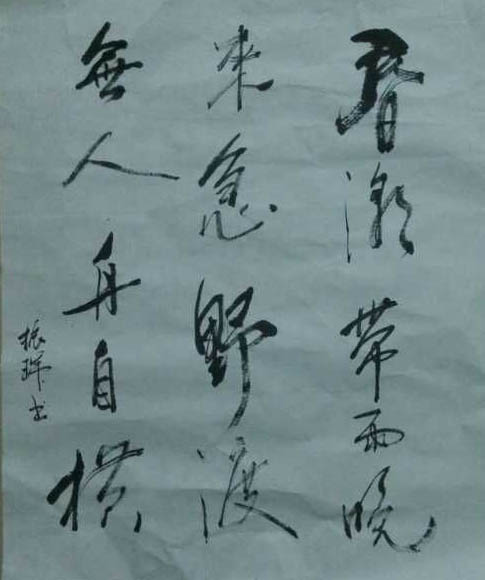 春潮带雨晚
来急野渡
無人舟自横
振辉书